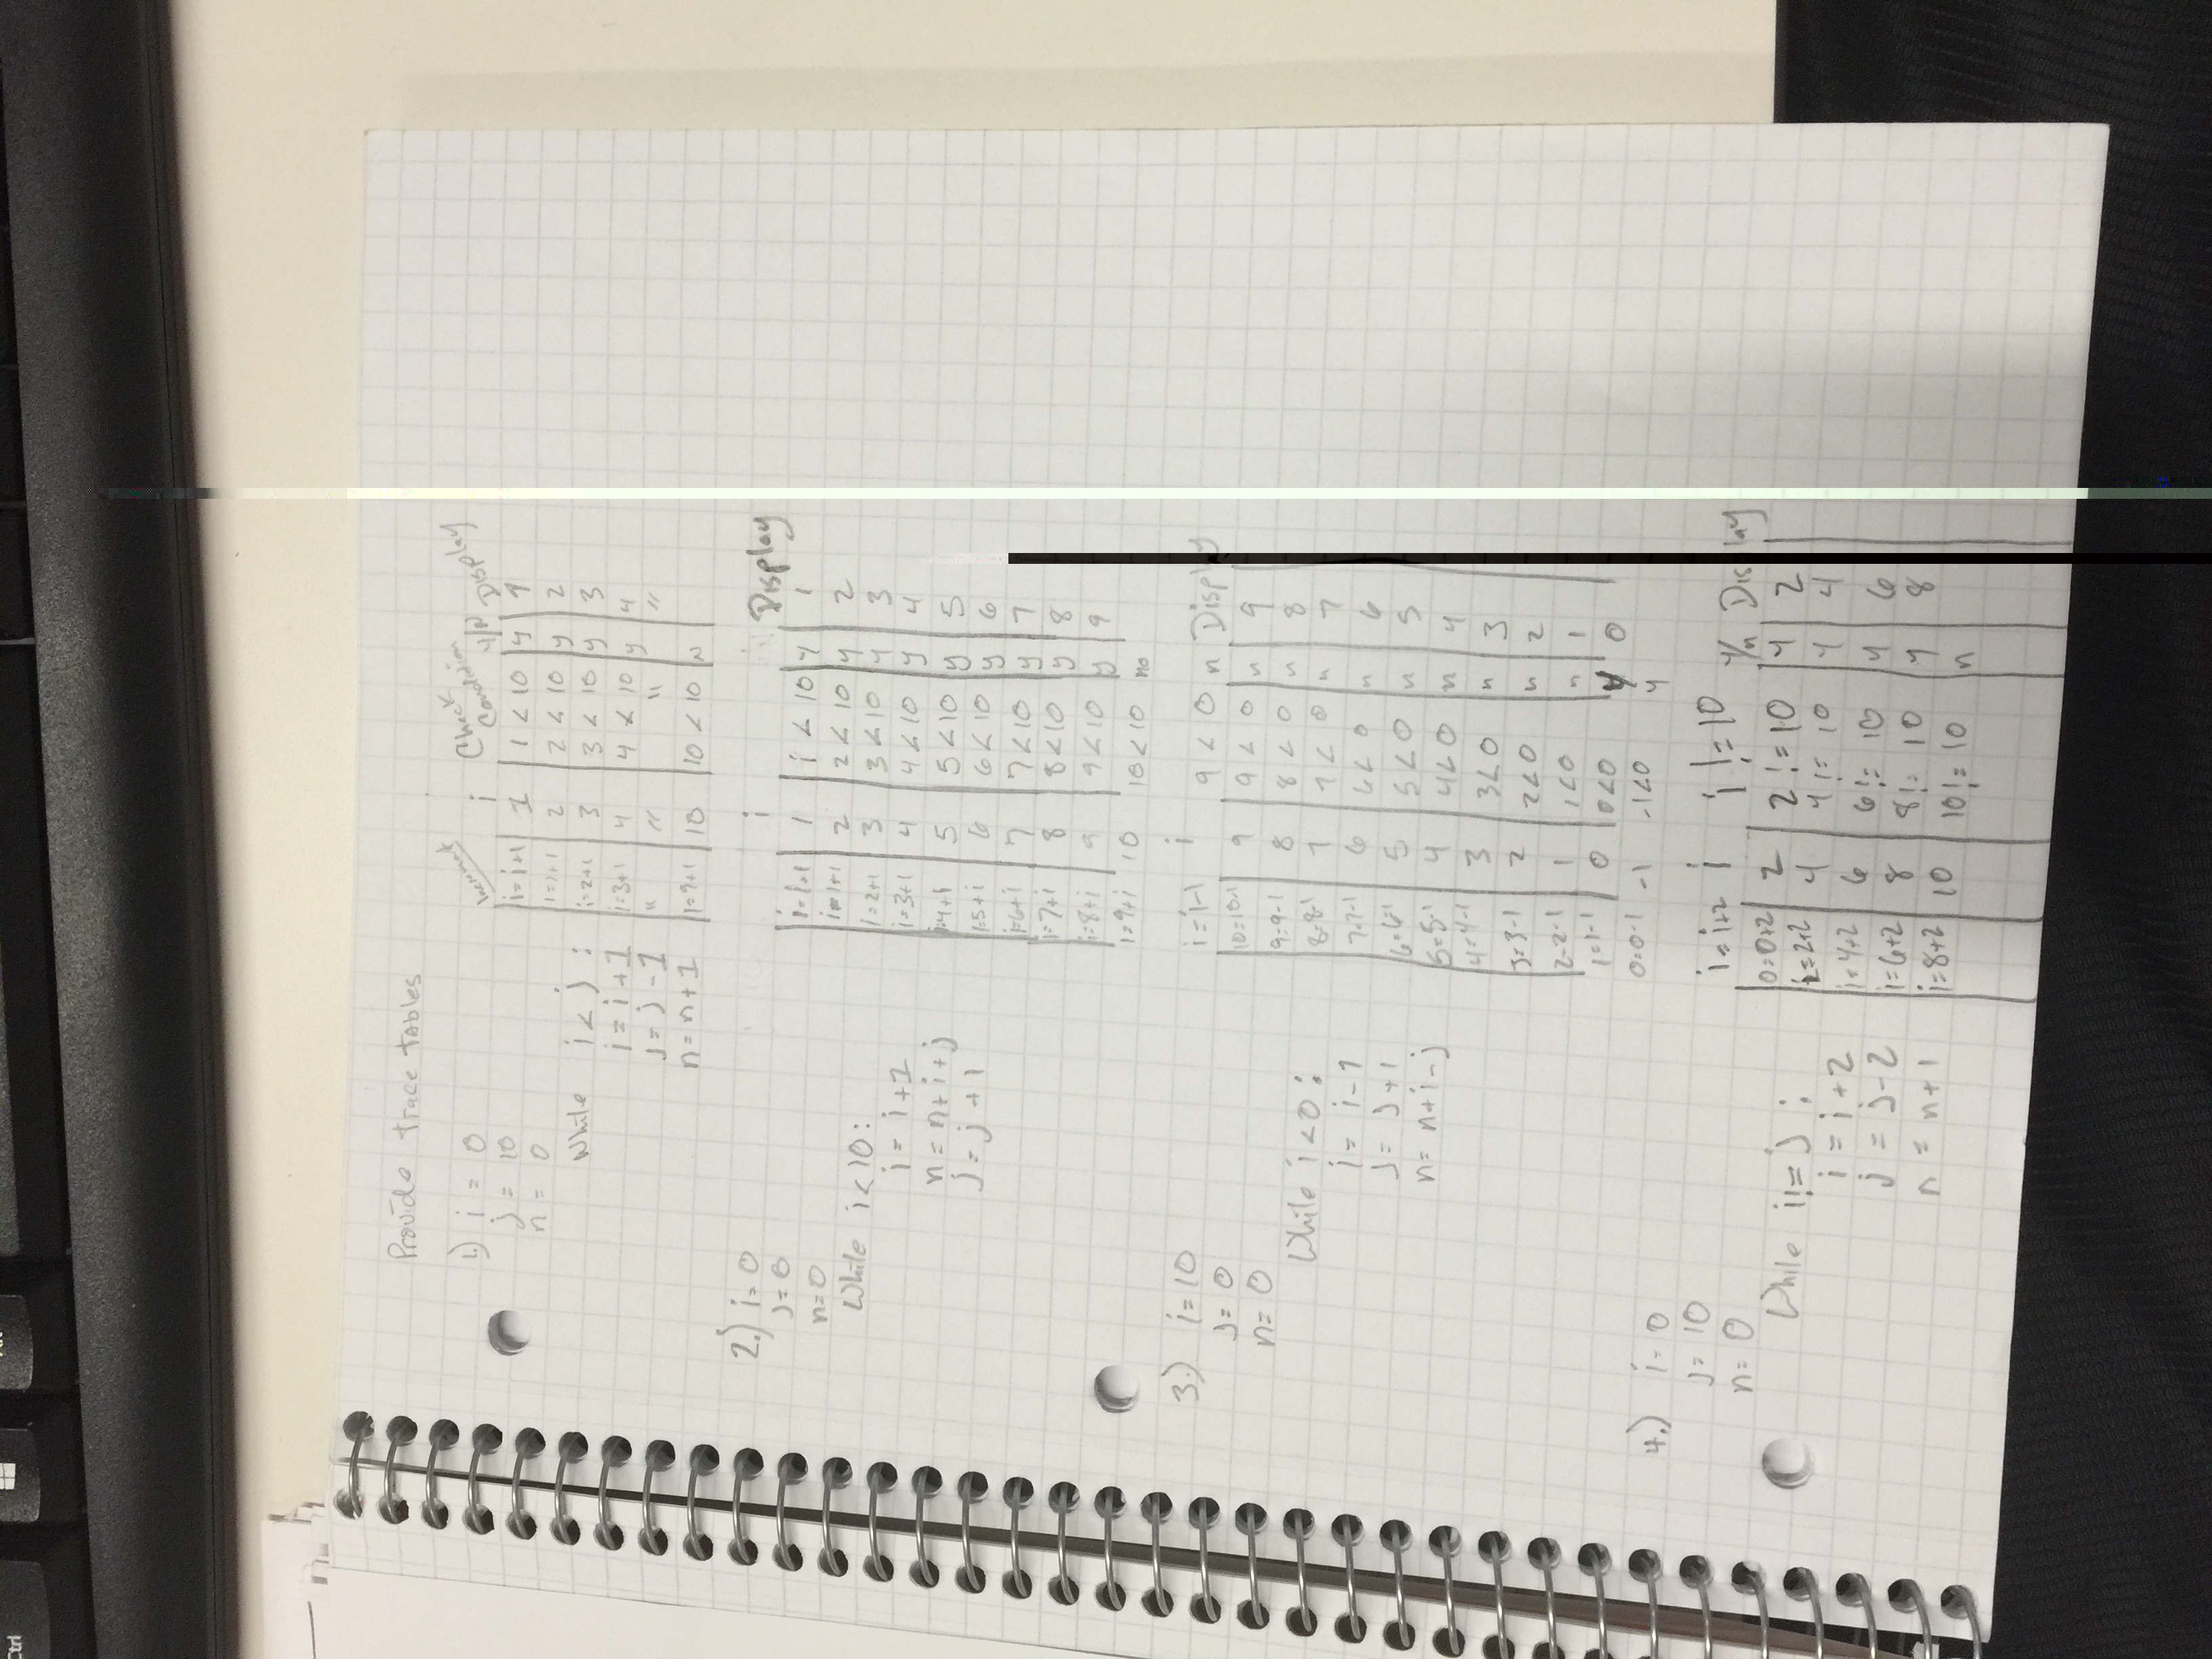 Provide trace tables
1.) i = 0
j = 10
n = 0
While i < j :
i = i + 1
j = j - 1
n = n + 1
i Check Condition y/n Display
i = i + 1 1 1 < 10 y 1
i = 1+1 2 2 < 10 y 2
i = 2+1 3 3 < 10 y 3
i = 3+1 4 4 < 10 y 4
" " " "
i = 9+1 10 10 < 10 N
2.) i = 0
j = 0
n = 0
While i < 10 :
i = i + 1
n = n + i + j
j = j + 1
i Display
i = i+1 1 i < 10 y 1
i = 1+1 2 2 < 10 y 2
i = 2+1 3 3 < 10 y 3
i = 3+1 4 4 < 10 y 4
i = 4+1 5 5 < 10 y 5
i = 5+1 6 6 < 10 y 6
i = 6+1 7 7 < 10 y 7
i = 7+1 8 8 < 10 y 8
i = 8+1 9 9 < 10 y 9
i = 9+1 10 10 < 10 no
3.) i = 10
j = 0
n = 0
While i < 0 :
i = i - 1
j = j + 1
n = n + i - j
i = i-1 i 9 < 0 n Display
10 = 10-1 9 9 < 0 n 9
9 = 9-1 8 8 < 0 n 8
8 = 8-1 7 7 < 0 n 7
7 = 7-1 6 6 < 0 n 6
6 = 6-1 5 5 < 0 n 5
5 = 5-1 4 4 < 0 n 4
4 = 4-1 3 3 < 0 n 3
3 = 3-1 2 2 < 0 n 2
2 = 2-1 1 1 < 0 n 1
1 = 1-1 0 0 < 0 0
0 = 0-1 -1 -1 < 0 y
4.) i = 0
j = 10
n = 0
While i != j :
i = i + 2
j = j - 2
n = n + 1
i = i+2 i i != 10 y/n Display
0 = 0+2 2 2 != 10 y 2
i = 2+2 4 4 != 10 y 4
i = 4+2 6 6 != 10 y 6
i = 6+2 8 8 != 10 y 8
i = 8+2 10 10 != 10 n
Ctrl